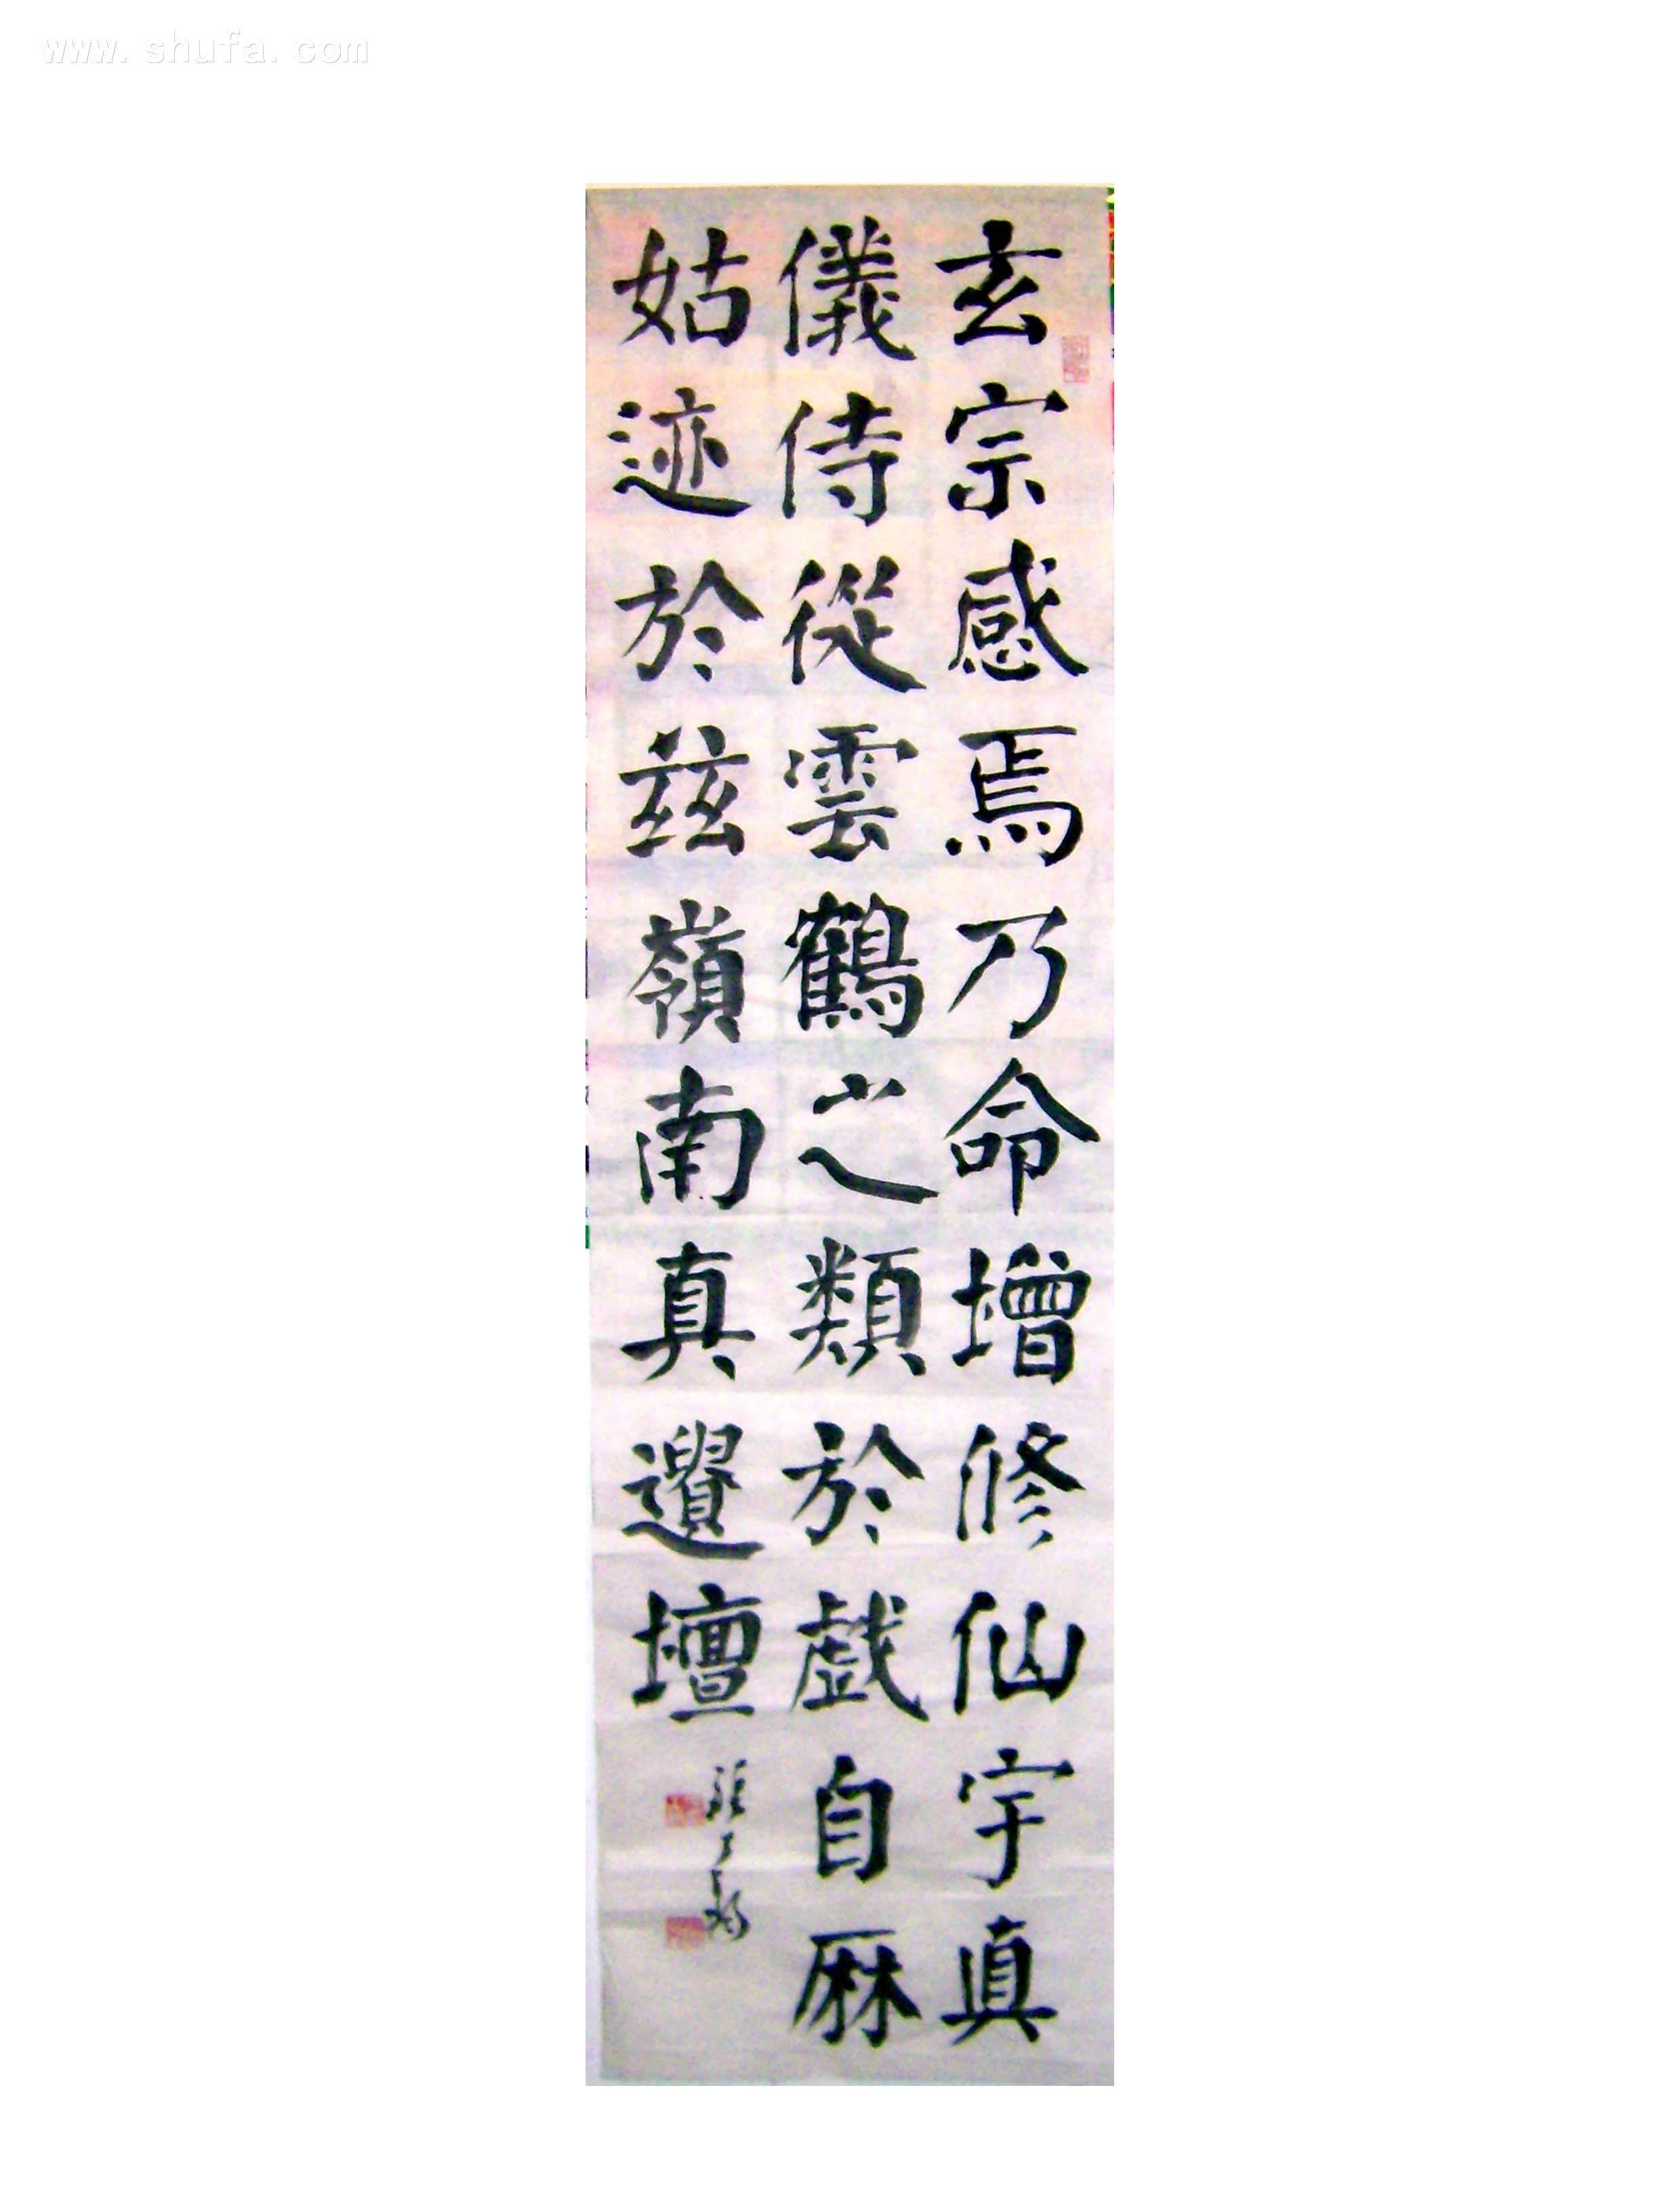 www.shufa.com
玄宗感焉乃命增修仙宇真
儀侍從雲鶴之類於戲自麻
姑迹於兹嶺南真遺壇